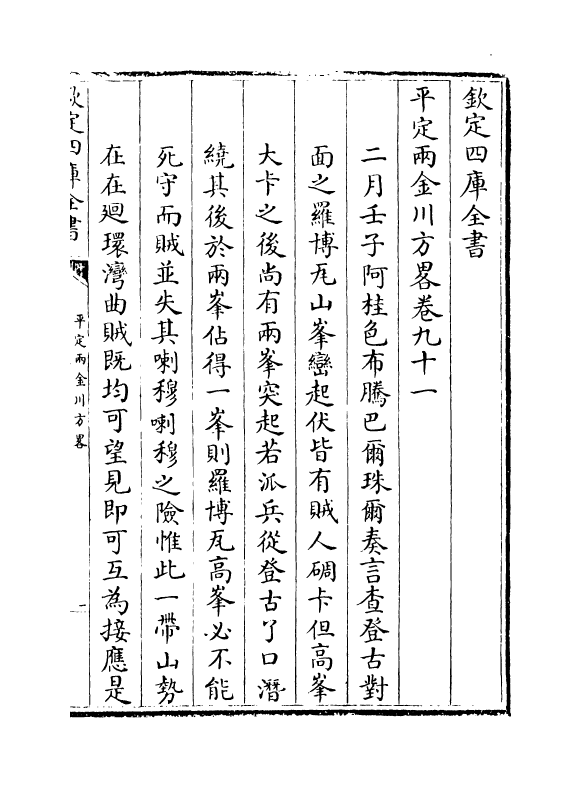 欽定四庫全書
平定兩金川方畧卷九十一
二月壬子阿桂色布騰巴爾珠爾奏言查登古對
面之羅博瓦山峯巒起伏皆有賊人碉卡但高峯
大卡之後尚有兩峯突起若派兵從登古丫口潛
繞其後於兩峯佔得一峯則羅博瓦高峯必不能
死守而賊並失其喇穆喇穆之險惟此一帶山勢
在在廻環灣曲賊既均可望見即可互為接應是
欽定四庫全書
平定兩金川方畧
一